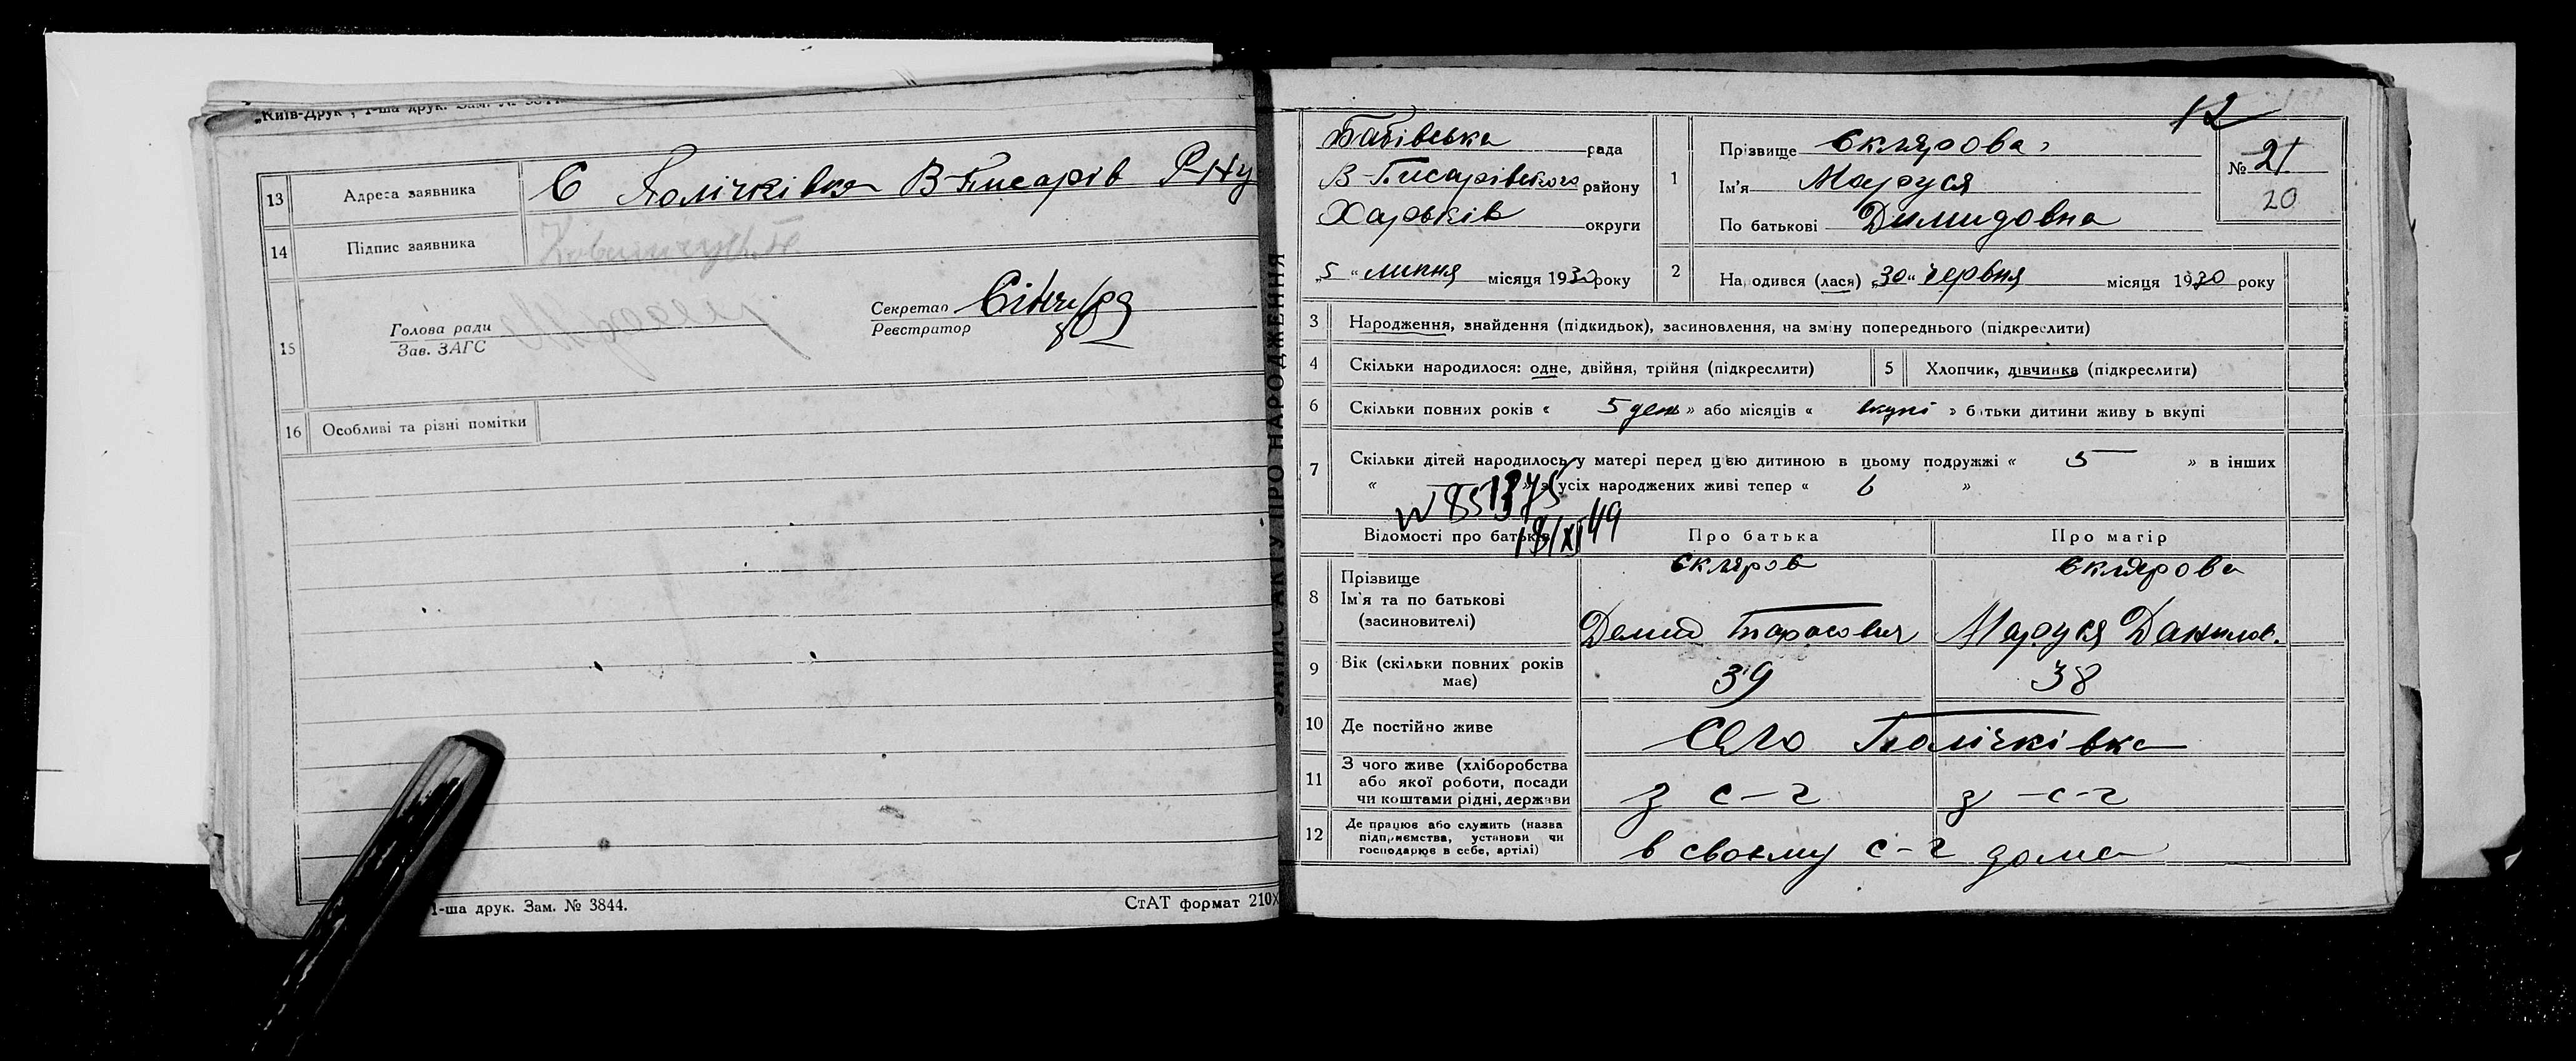 „Київ-Друк", 1-ша друк. Зам. № 3844
13 Адреса заявника С Полічківка В-Писарів Р-Ну
14 Підпис заявника
15 Голова ради
Зав. ЗАГС
Секретар
Реєстратор
16 Особливі та різні помітки
1-ша друк. Зам. № 3844.
СтАТ формат 210×
ЗАПИС АКТУ ПРО НАРОДЖЕННЯ
12
рада
В-Писарівського району
Харьків округи
„5“ липня місяця 1930 року
1 Прізвище Склярова
Ім'я Маруся
По батькові Димидовна
№ 21
20
2 Народився (лася) „30“ червня місяця 1930 року
3 Народження, знайдення (підкидьок), засиновлення, на зміну попереднього (підкреслити)
4 Скільки народилося: одне, двійня, трійня (підкреслити)
5 Хлопчик, дівчинка (підкреслити)
6 Скільки повних років « 5 день » або місяців « вкупі » батьки дитини живуть вкупі
7 Скільки дітей народилось у матері перед цією дитиною в цьому подружжі « 5 » в інших
« — » з усіх народжених живі тепер « 6 »
18/XI 49
Відомості про батьків Про батька Про матір
8 Прізвище Скляров Склярова
Ім'я та по батькові
(засиновителі) Демид Тарасович Маруся Данилов.
9 Вік (скільки повних років
має) 39 38
10 Де постійно живе Село Полічківка
11 З чого живе (хліборобства
або якої роботи, посади
чи коштами рідні, держави з с-г з -с-г
12 Де працює або служить (назва
підприємства, установи чи
господарює в себе, артілі) в своєму с-г дома